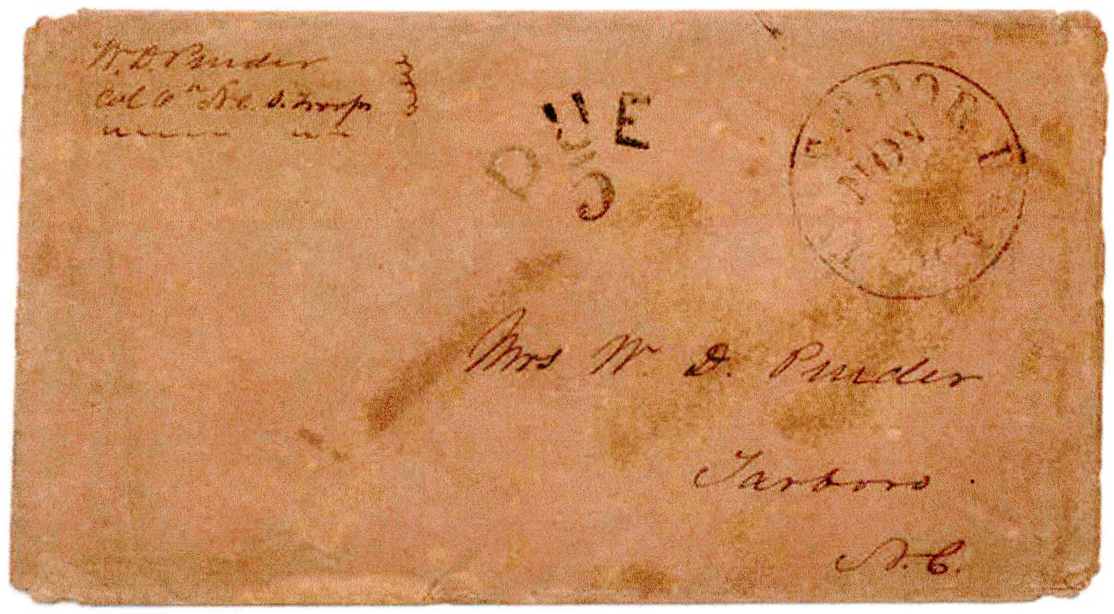 W. D. Pender
Col 6th N.C. S. Troops
DUE
5
NOV
Mrs W. D. Pender
Tarboro.
N.C.